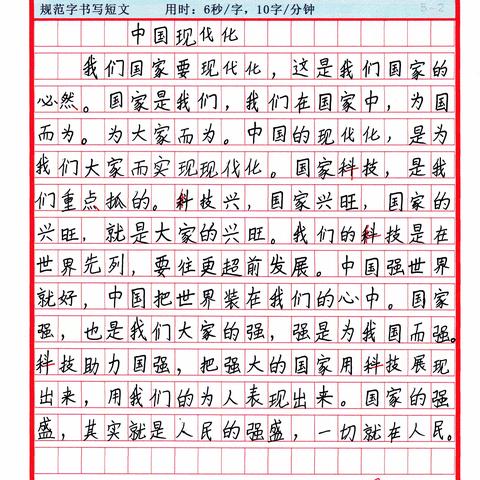 规范字书写短文 用时：6秒/字，10字/分钟 B-2
中国现代化
我们国家要现代化，这是我们国家的
必然。国家是我们，我们在国家中，为国
而为。为大家而为。中国的现代化，是为
我们大家而实现现代化。国家科技，是我
们重点抓的。科技兴，国家兴旺，国家的
兴旺，就是大家的兴旺。我们的科技是在
世界先列，要往更超前发展。中国强世界
就好，中国把世界装在我们的心中。国家
强，也是我们大家的强，强是为我国而强。
科技助力国强，把强大的国家用科技展现
出来，用我们的为人表现出来。国家的强
盛，其实就是人民的强盛，一切就在人民。